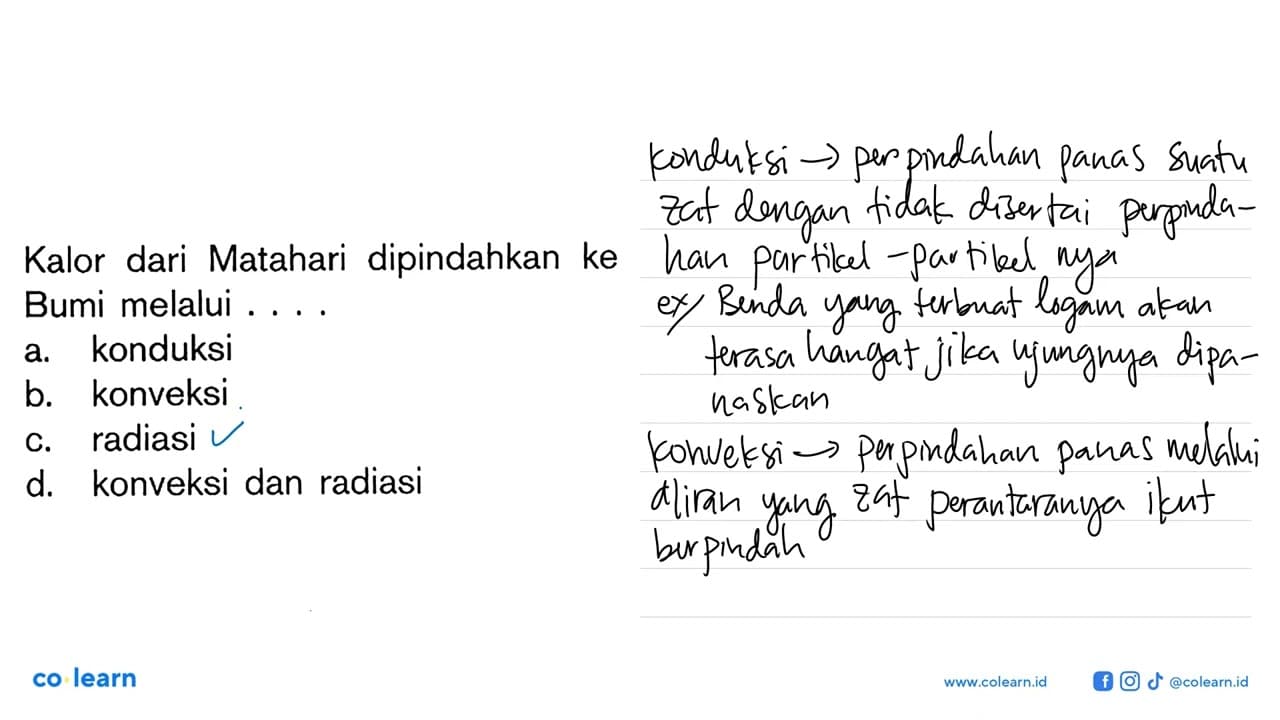 Kalor dari Matahari dipindahkan ke
Bumi melalui . . . .
a. konduksi
b. konveksi
c. radiasi ✓
d. konveksi dan radiasi
konduksi → perpindahan panas suatu
zat dengan tidak disertai perpinda-
han partikel-partikel nya
ex/ Benda yang terbuat logam akan
terasa hangat jika ujungnya dipa-
naskan
konveksi → perpindahan panas melalui
aliran yang zat perantaranya ikut
berpindah
co learn
www.colearn.id
@colearn.id